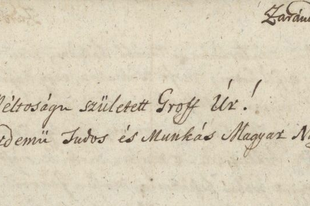 Zaránd
éltoságu született Groff Úr!
demü Tudos és Munkás Magyar